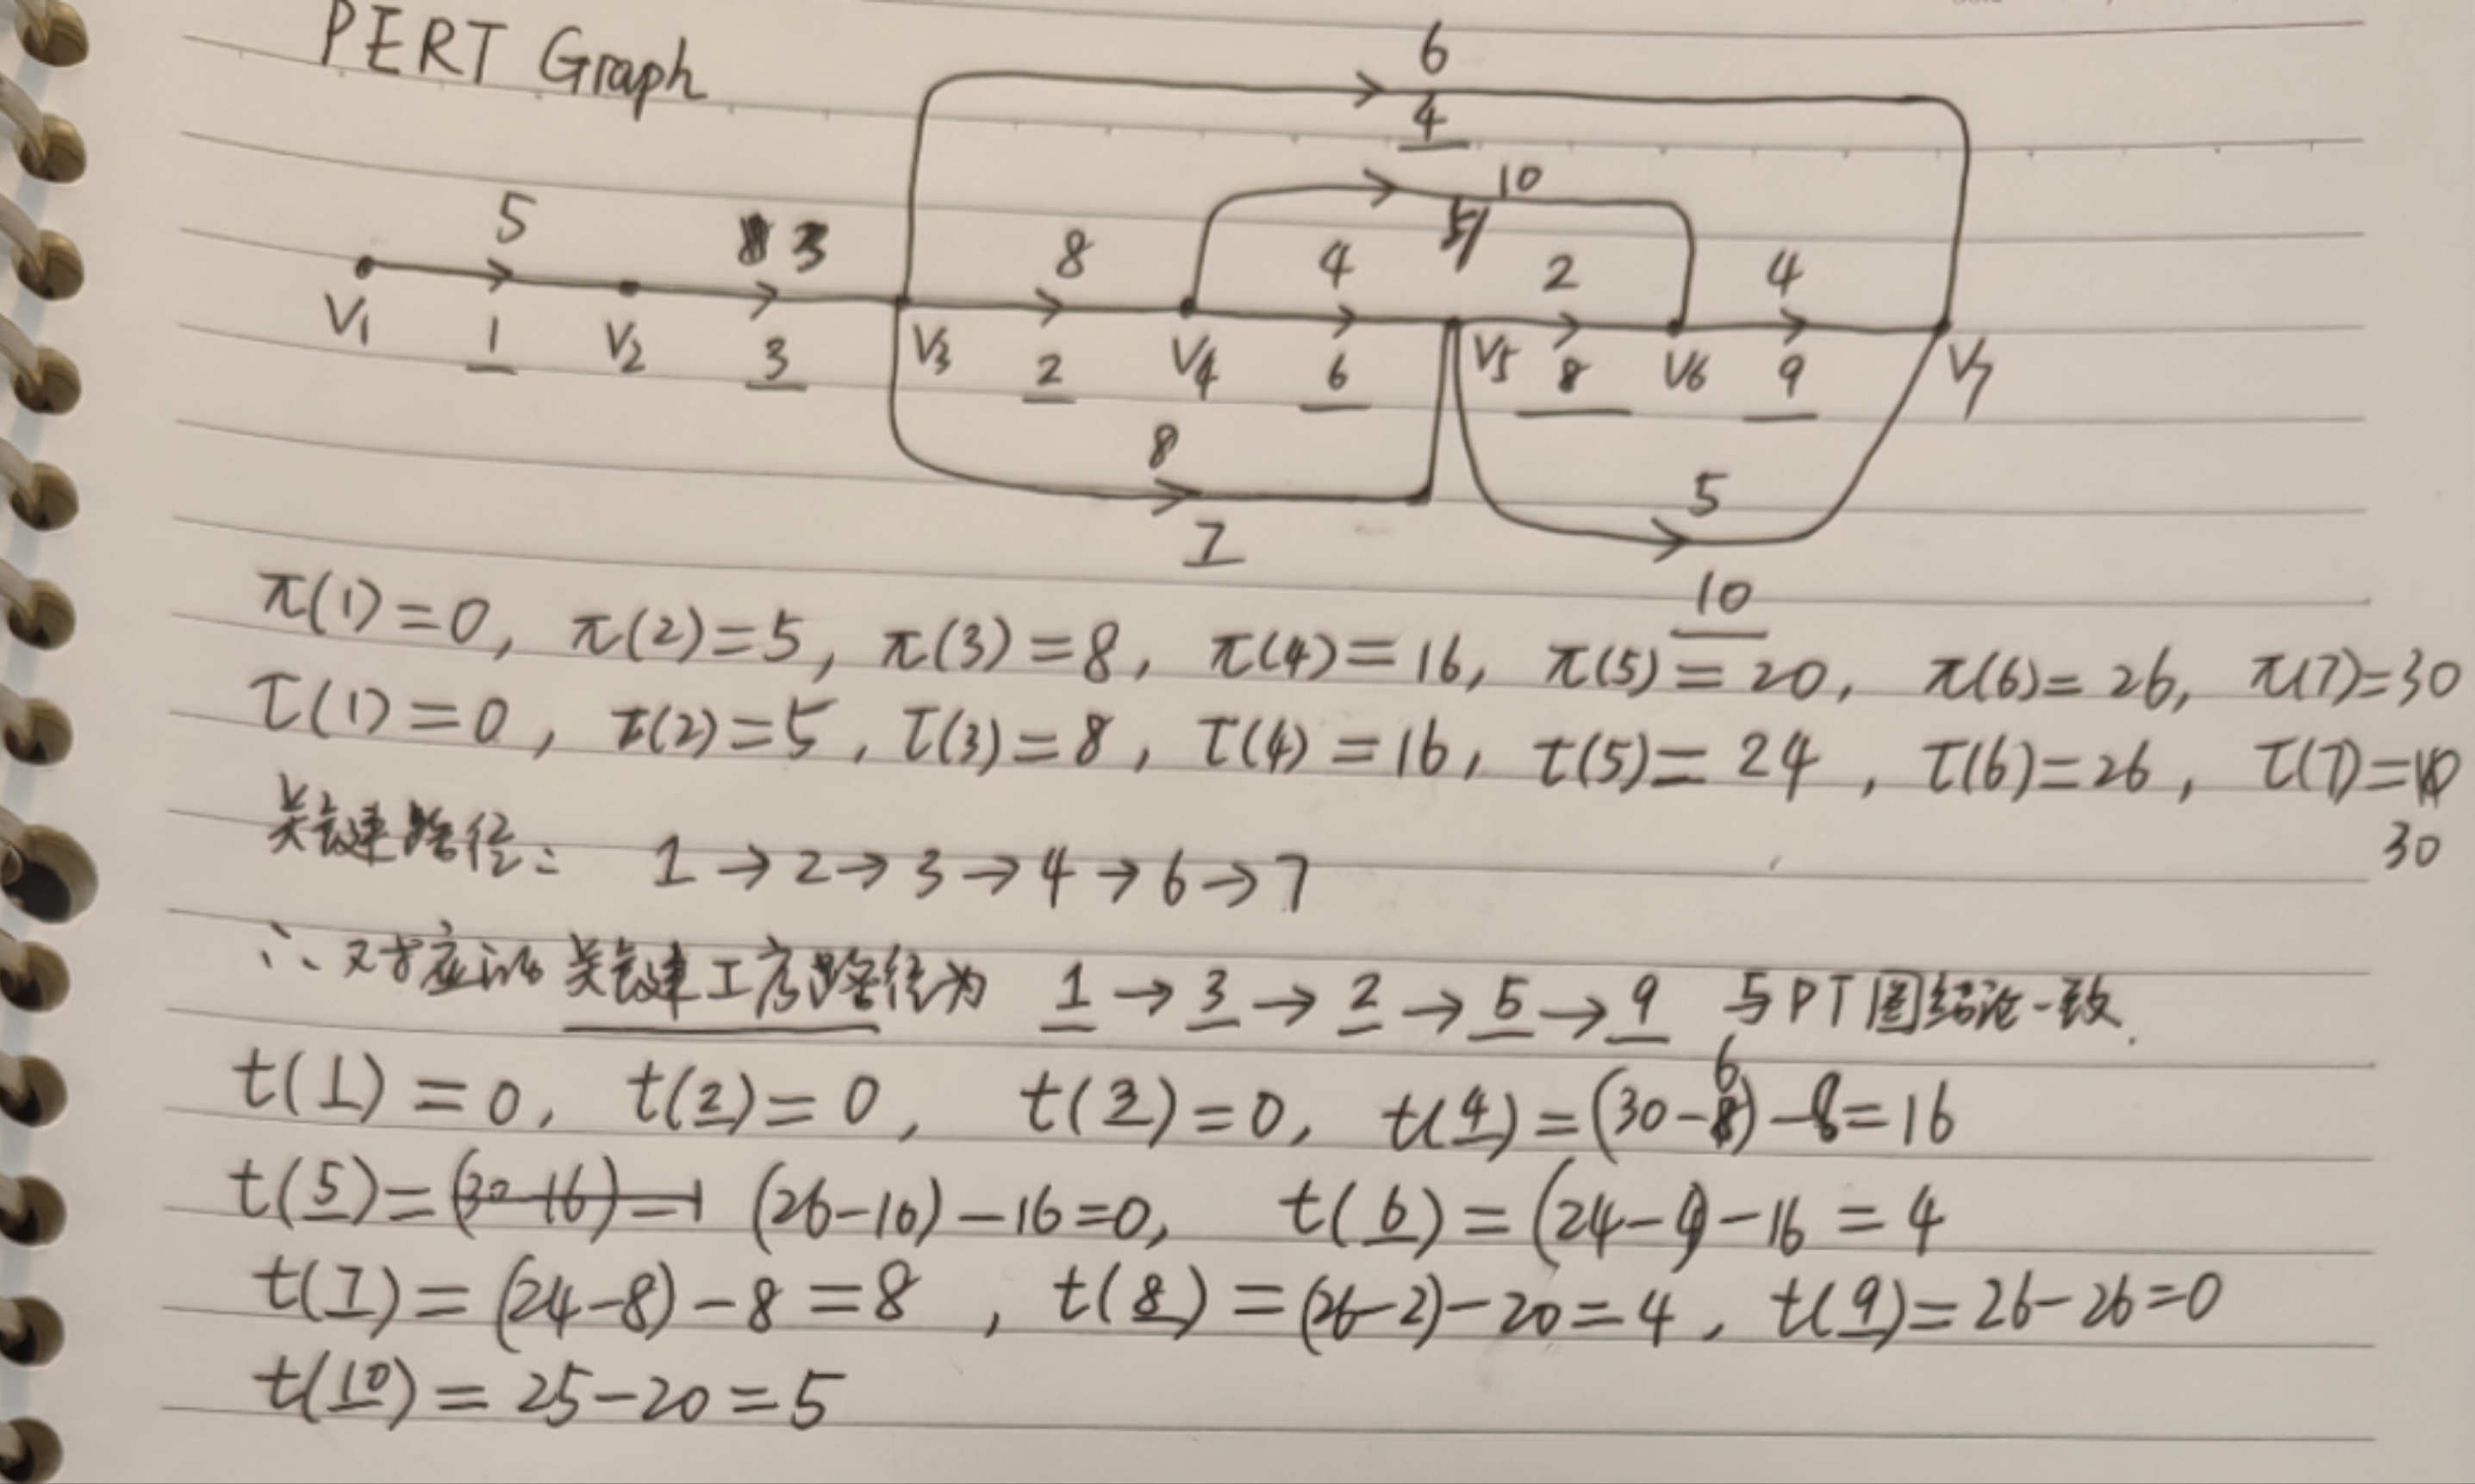 PERT Graph
6
4
10
5
5
3
8
4
2
4
V1
1
V2
3
V3
2
V4
6
V5
8
V6
9
V7
8
7
5
10
π(1)=0, π(2)=5, π(3)=8, π(4)=16, π(5)=20, π(6)=26, π(7)=30
τ(1)=0, τ(2)=5, τ(3)=8, τ(4)=16, τ(5)=24, τ(6)=26, τ(7)=
30
关键路径: 1→2→3→4→6→7
∴ 对应的关键工序路径为 1→3→2→5→9 与PT图结论一致.
t(1)=0, t(2)=0, t(3)=0, t(4)=(30-6)-8=16
t(5)=(30-16)-1 (26-10)-16=0, t(6)=(24-4)-16=4
t(7)=(24-8)-8=8, t(8)=(26-2)-20=4, t(9)=26-26=0
t(10)=25-20=5